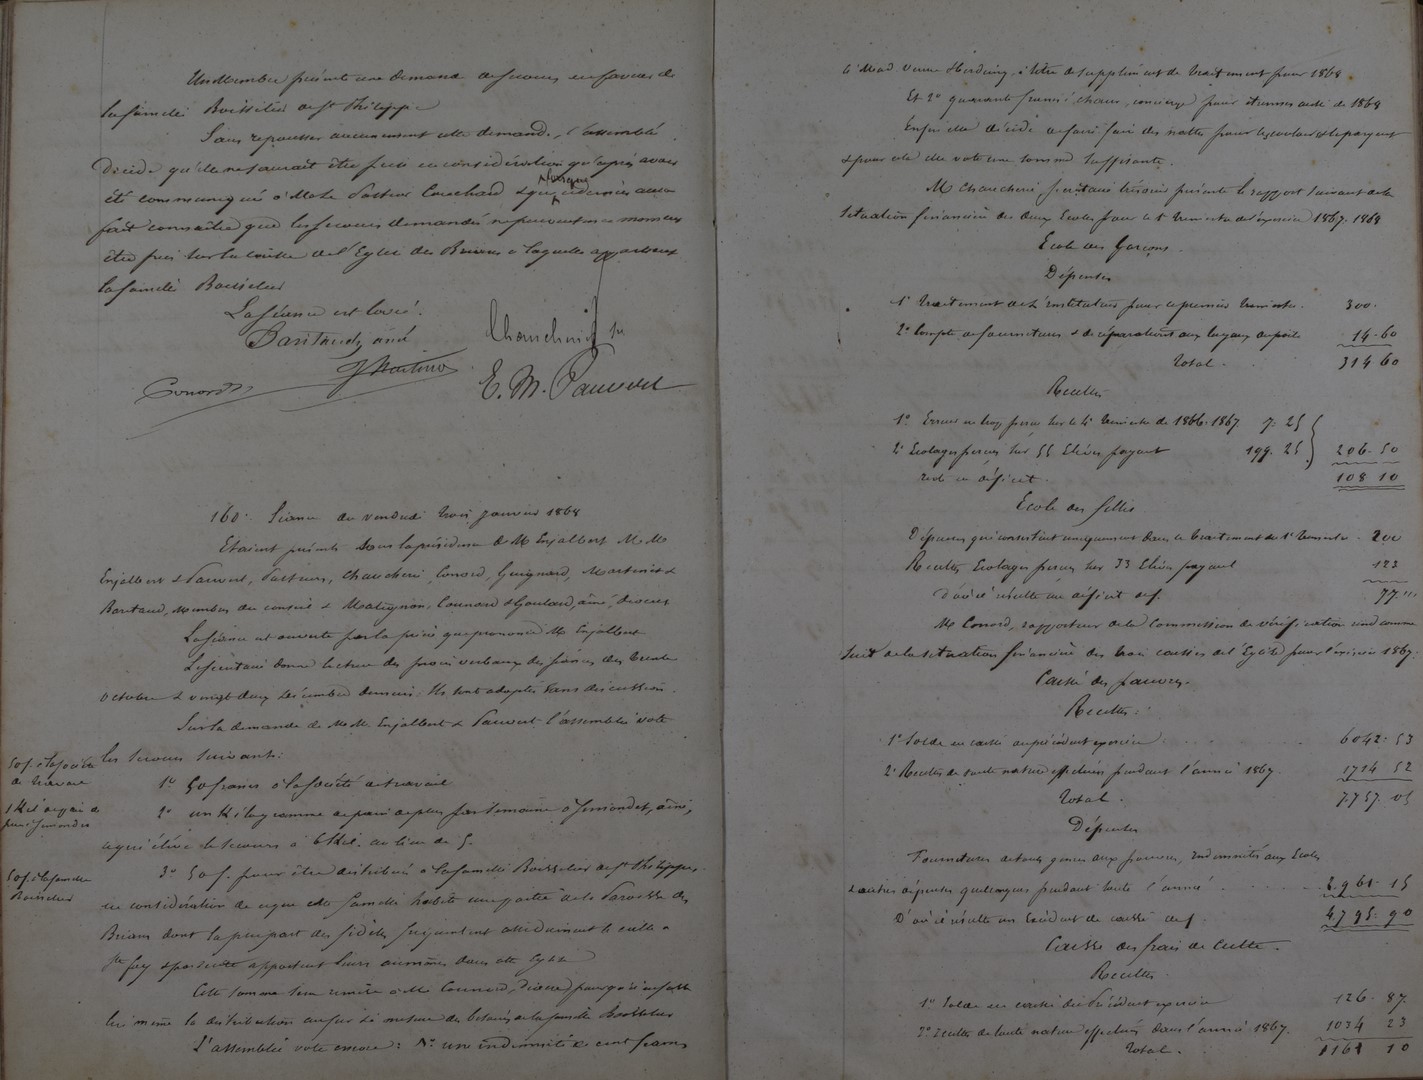 Un Membre présente une demande de secours en faveur de
la famille Boisselier de St Philippe
Sans repousser aucunement cette demande, l'assemblée
décide qu'elle ne saurait être prise en considération qu'après avoir
été communiquée à M. le Pasteur et que lorsque ce dernier aura
fait connaître que les secours demandés ne peuvent en ce moment
être pris sur la caisse de l'Eglise des Briaux à laquelle appartient
la famille Boisselier
La séance est levée.
Baritaud, ainé
Chaucherie
Martineau
E. M. Pauvert
Conord
160. Séance du vendredi trois janvier 1868
Etaient présents sous la présidence de M. Enjalbert M. M.
Enjalbert & Pauvert, Pasteurs, Chaucherie, Conord, Guignard, Martineau &
Baritaud, membres du conseil & Matignon, Counord & Goulard, ainé, diacres
La séance est ouverte par la prière que prononce M. Enjalbert
Le secrétaire donne lecture des procès verbaux des séances des trente
octobre & vingt deux décembre derniers. Ils sont adoptés sans discussion.
Sur la demande de M. M. Enjalbert & Pauvert l'assemblée vote
les secours suivants:
50 f. à la société de travail
1° 50 francs à la société de travail
1 Kil. de pain de plus
2° un Kilogramme de pain de plus par semaine à ainé,
ce qui élève le secours à 6 Kil. au lieu de 5.
50 f. à la famille Boisselier
3° 50 f. pour être distribué à la famille Boisselier de St Philippe
en considération de ce que cette famille habite une partie de la Paroisse des
Briaux dont la plupart des fidèles fréquentent assidument le culte à
Ste Foy & par suite apportent leurs aumônes dans cette Eglise
Cette somme sera remise à M. Counord, Diacre, pour qu'il en fasse
lui même la distribution au fur & à mesure des besoins de la famille Boisselier
L'assemblée vote encore: 1° une indemnité de cent francs
à Mad. Veuve Herding, à titre de supplément de traitement pour 1868
Et 2° quarante francs à, concierge pour étrennes de 1868
Enfin elle décide de faire faire des nattes pour
& pour cela elle vote une somme suffisante.
M. Chaucherie secrétaire trésorier présente le rapport suivant de la
situation financière des deux Ecoles pour le 1er trimestre de l'exercice 1867-1868
Ecole des Garçons
Dépenses
1° Traitement de l'instituteur pour ce premier trimestre. 300.
2° Compte de fournitures & de réparations aux tuyaux de poële 14.60
Total. 314 60
Recettes
1° Erreur en trop perçu sur le 4e trimestre de 1866-1867 7. 25
2° Ecolages perçus sur 55 Elèves payant 199. 25 206. 50
reste en déficit. 108 10
Ecole des filles
Dépenses qui consistent uniquement dans le traitement du 1er trimestre. 200
Recettes, Ecolages perçus sur 33 Elèves payant 123
D'où il résulte un déficit de f. 77. "
M. Conord, rapporteur de la Commission de vérification rend comme
suit de la situation financière des trois caisses de l'Eglise pour l'exercice 1867.
Caisse des pauvres.
Recettes:
1° Solde en caisse au précédent exercice 6042. 53
2° Recettes de toute nature effectuées pendant l'année 1867. 1714 52
Total. 7.757. 05
Dépenses
Fournitures de tout genre aux pauvres, indemnités aux Ecoles
& autres dépenses quelconques pendant toute l'année 2.961. 15
D'où il résulte un Excédent de caisse de f. 4795. 90
Caisse des frais de Culte.
Recettes.
1° Solde en caisse du Précédent exercice 126. 87.
2° Recettes de toute nature effectuées dans l'année 1867. 1034 23
Total. 1161 10